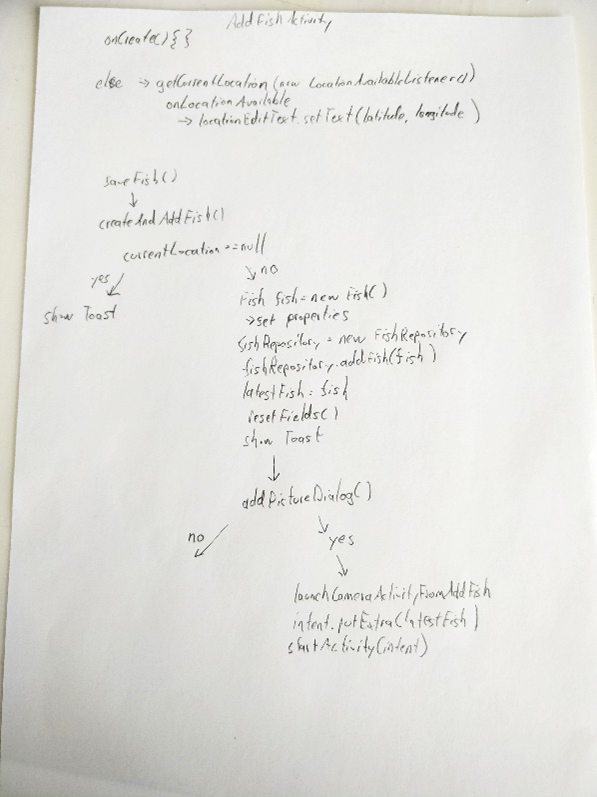 Add Fish Activity
onCreate() { }
else → getCurrentLocation (new LocationAvailableListener())
onLocationAvailable
→ locationEditText.setText(latitude, longitude)
saveFish()
↓
createAndAddFish()
currentLocation == null
yes
no
show Toast
Fish fish = new Fish()
→ set properties
fishRepository = new FishRepository
fishRepository.addFish(fish)
latestFish = fish
resetFields()
show Toast
addPictureDialog()
no
yes
launchCameraActivityFromAddFish
intent.putExtra(latestFish)
startActivity(intent)